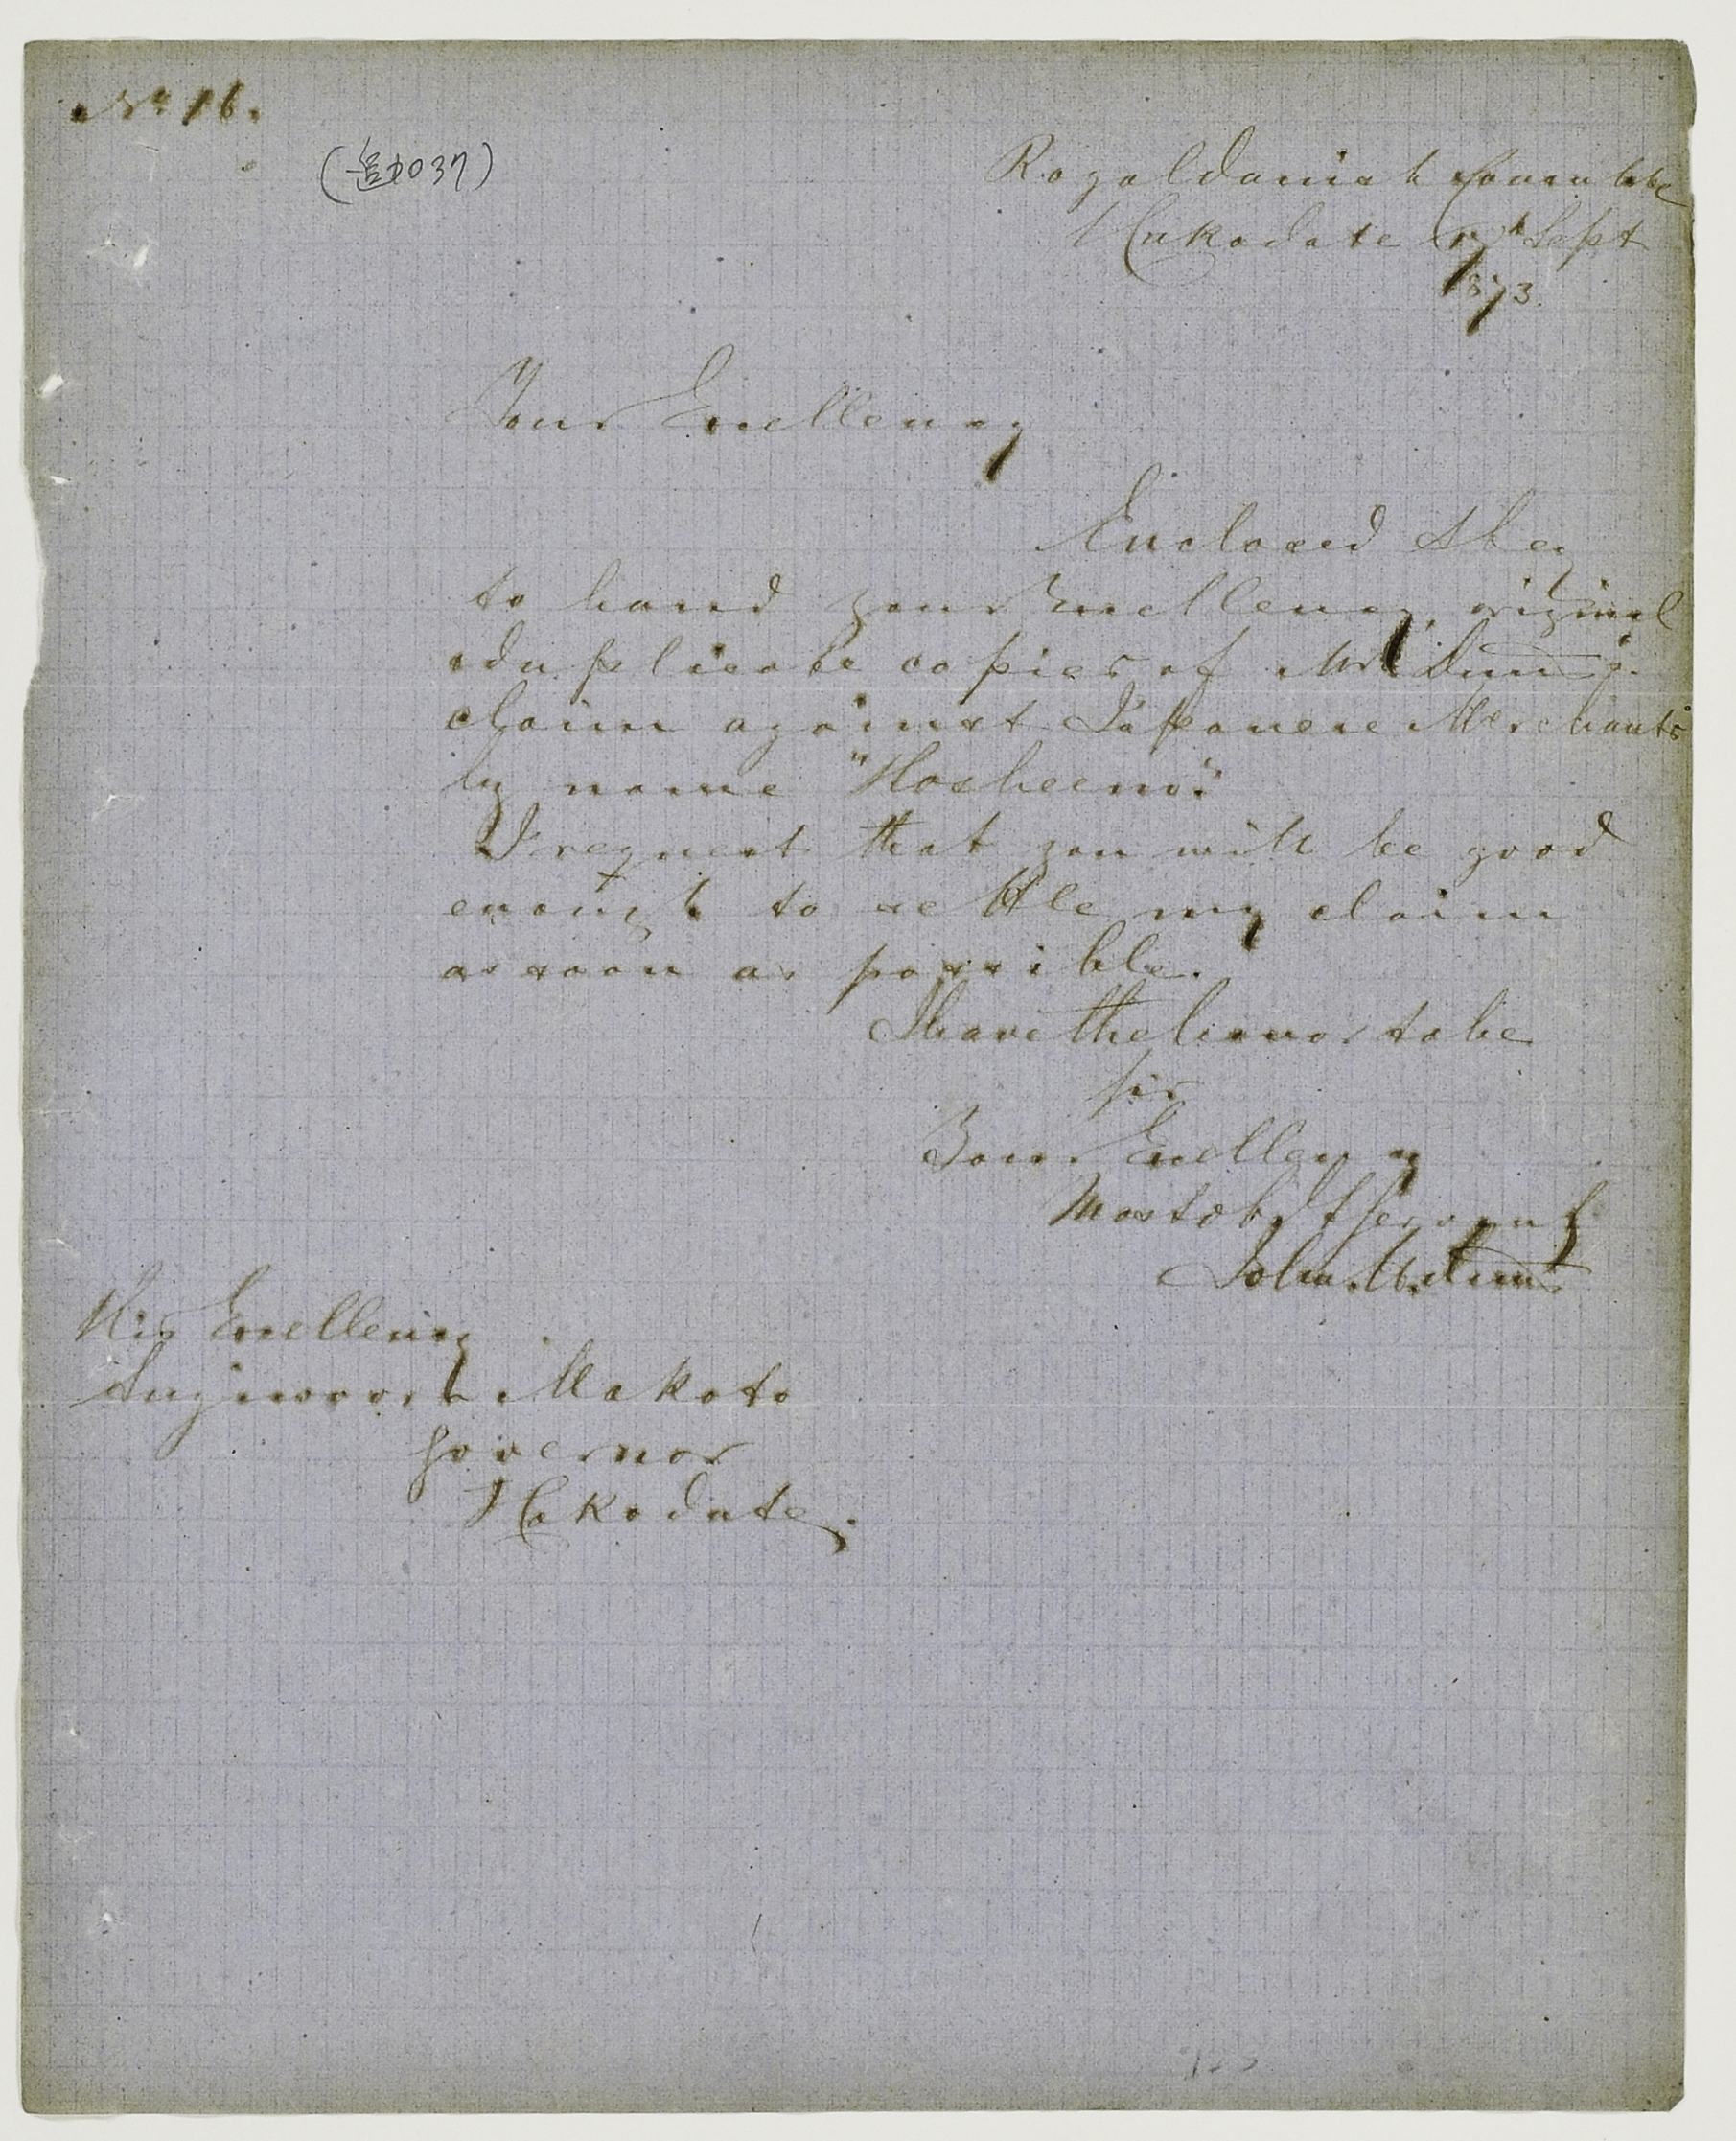 No 16.
(追1037)
Royal Danish Consulate
Hakodate 17th Sept
1873.
Your Excellency
Enclosed I beg
to hand your Excellency, original
& duplicate copies of Mr Duus's
claim against Japanese Merchants
by name "Hosheeno".
I request that you will be good
enough to settle my claim
as soon as possible.
I have the honor to be
Sir
Your Excellency
Most obdt Servant
John. H. Duus
His Excellency
Sugiwoora Makoto
Governor
Hakodate.